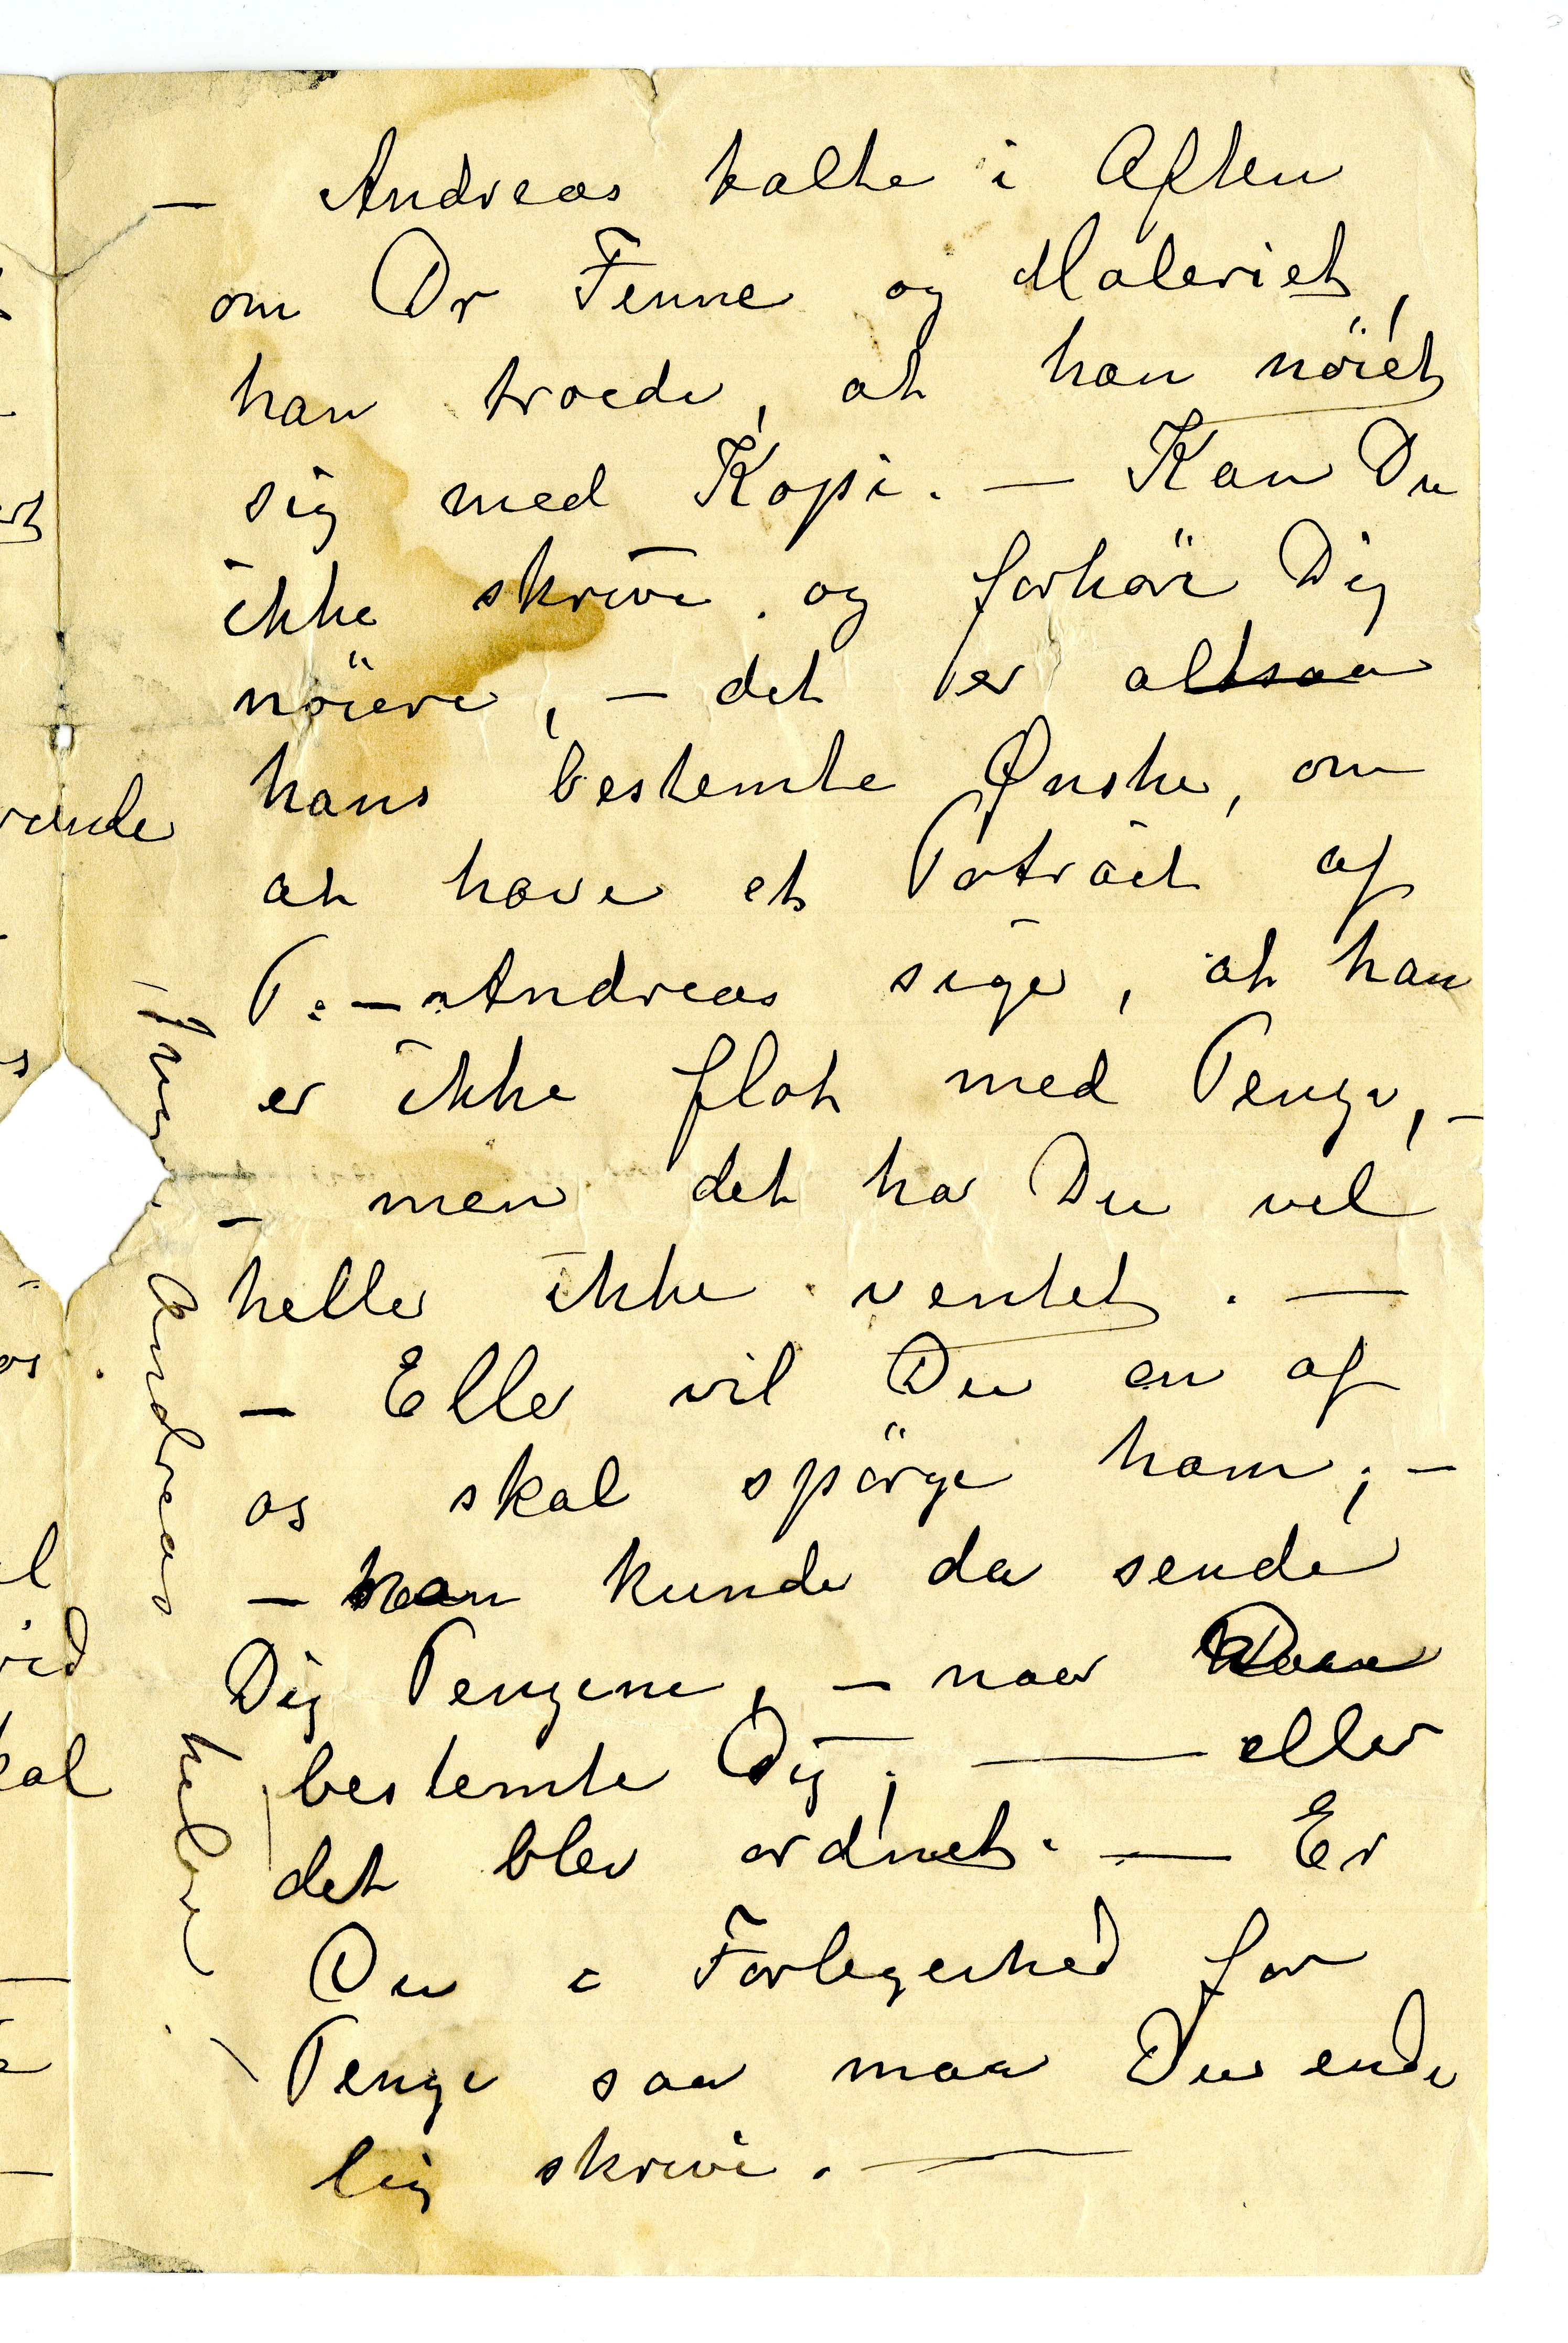 — Andreas talte i Aften
om Dr Fenne og Maleriet,
han troede, at han nöiet
sig med Kopi. — Kan Du
ikke skrive og forhöre Dig
nöiere, — det er altsaa
hans bestemte Ønske, om
at have et Poträt af
P. — Andreas siger, at han
er ikke flot med Penge, —
— men det har Du vel
heller ikke ventet. —
— Eller vil Du en af
os skal spörge ham; —
— han kunde da sende
Dig Pengene, — naar
bestemte Dig; — eller
det blev ordnet. — Er
Du i Forlegenhed for
Penge saa maa Du ende
lig skrive. —
Andreas hilser
vende